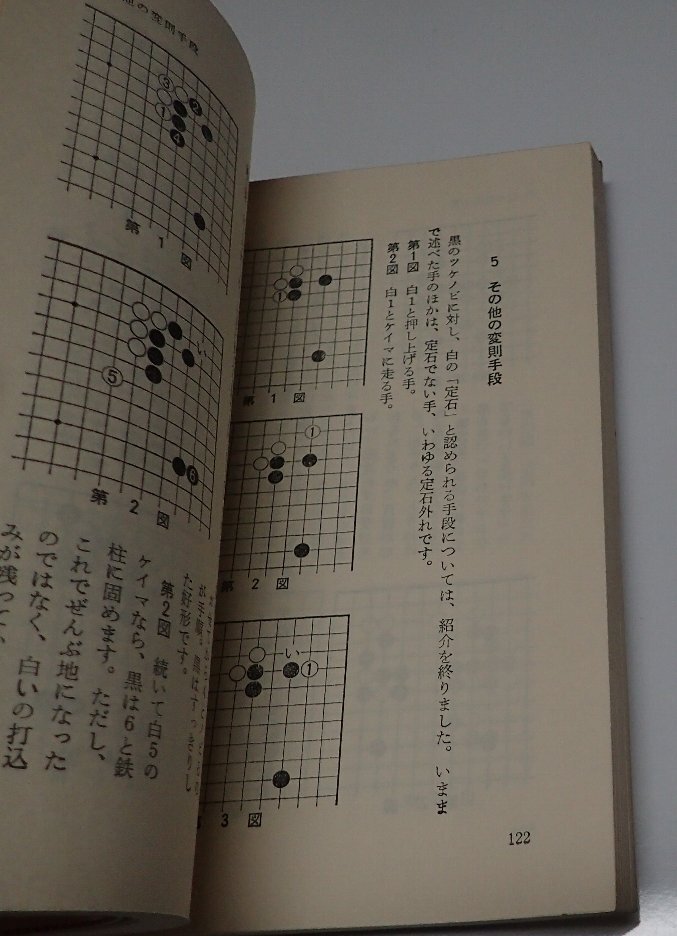 5 その他の変則手段
黒のツケノビに対し、白の「定石」と認められる手段については、紹介を終りました。いまま
で述べた手のほかは、定石でない手、いわゆる定石外れです。
第1図 白1と押し上げる手。
第2図 白1とケイマに走る手。
1
第1図
1
第2図
い
1
3図
122
の変則手段
3
2
1
4
第1図
い
5
6
第2図
が手順。黒はすっきりし
た好形です。
第2図 続いて白5の
ケイマなら、黒は6と鉄
柱に固めます。ただし、
これでぜんぶ地になった
のではなく、白いの打込
みが残って、